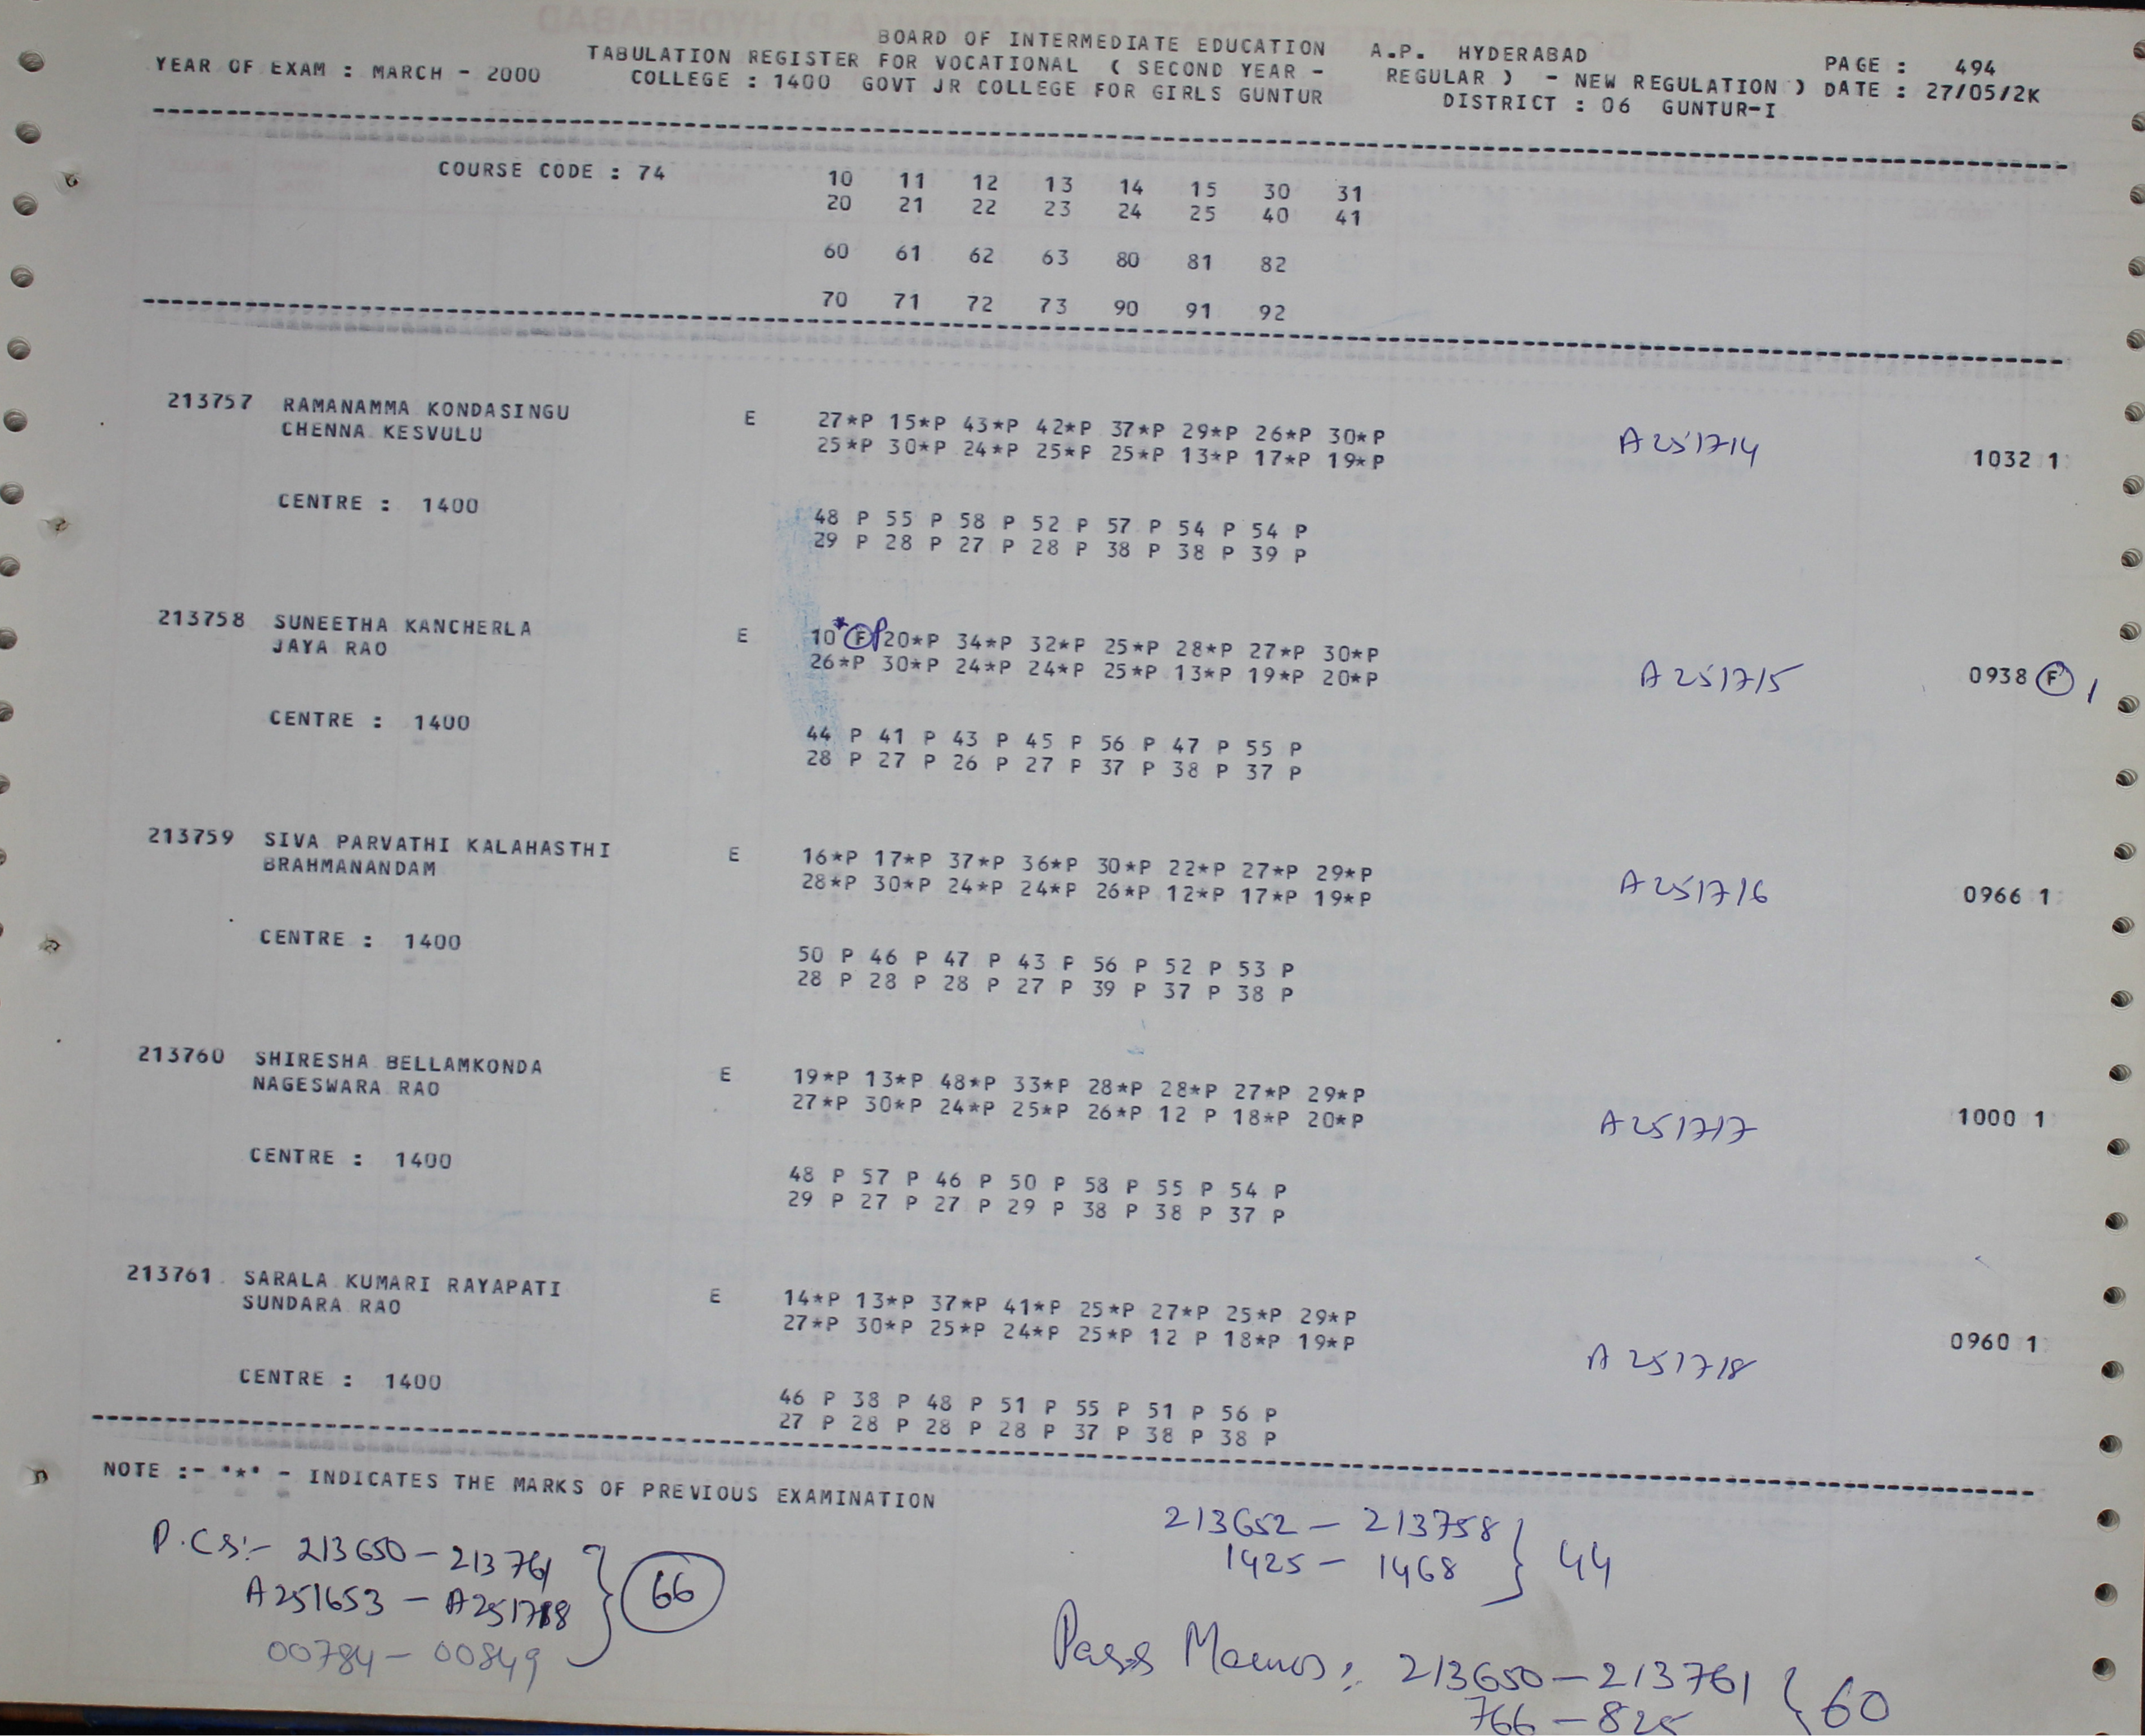 BOARD OF INTERMEDIATE EDUCATION A.P. HYDERABAD
YEAR OF EXAM : MARCH - 2000 TABULATION REGISTER FOR VOCATIONAL ( SECOND YEAR - REGULAR ) - NEW REGULATION ) PAGE : 494
COLLEGE : 1400 GOVT JR COLLEGE FOR GIRLS GUNTUR DISTRICT : 06 GUNTUR-I DATE : 27/05/2K
COURSE CODE : 74 10 11 12 13 14 15 30 31
20 21 22 23 24 25 40 41
60 61 62 63 80 81 82
70 71 72 73 90 91 92
213757 RAMANAMMA KONDASINGU E 27*P 15*P 43*P 42*P 37*P 29*P 26*P 30*P
CHENNA KESVULU 25*P 30*P 24*P 25*P 25*P 13*P 17*P 19*P A251714 1032 1
CENTRE : 1400 48 P 55 P 58 P 52 P 57 P 54 P 54 P
29 P 28 P 27 P 28 P 38 P 38 P 39 P
213758 SUNEETHA KANCHERLA E 10 * F P 20*P 34*P 32*P 25*P 28*P 27*P 30*P
JAYA RAO 26*P 30*P 24*P 24*P 25*P 13*P 19*P 20*P A251715 0938 F 1
CENTRE : 1400 44 P 41 P 43 P 45 P 56 P 47 P 55 P
28 P 27 P 26 P 27 P 37 P 38 P 37 P
213759 SIVA PARVATHI KALAHASTHI E 16*P 17*P 37*P 36*P 30*P 22*P 27*P 29*P
BRAHMANANDAM 28*P 30*P 24*P 24*P 26*P 12*P 17*P 19*P A251716 0966 1
CENTRE : 1400 50 P 46 P 47 P 43 P 56 P 52 P 53 P
28 P 28 P 28 P 27 P 39 P 37 P 38 P
213760 SHIRESHA BELLAMKONDA E 19*P 13*P 48*P 33*P 28*P 28*P 27*P 29*P
NAGESWARA RAO 27*P 30*P 24*P 25*P 26*P 12 P 18*P 20*P A251717 1000 1
CENTRE : 1400 48 P 57 P 46 P 50 P 58 P 55 P 54 P
29 P 27 P 27 P 29 P 38 P 38 P 37 P
213761 SARALA KUMARI RAYAPATI E 14*P 13*P 37*P 41*P 25*P 27*P 25*P 29*P
SUNDARA RAO 27*P 30*P 25*P 24*P 25*P 12 P 18*P 19*P A251718 0960 1
CENTRE : 1400 46 P 38 P 48 P 51 P 55 P 51 P 56 P
27 P 28 P 28 P 28 P 37 P 38 P 38 P
NOTE :- '*' - INDICATES THE MARKS OF PREVIOUS EXAMINATION
213652 - 213758 } 44
1425 - 1468
P.CS:- 213650 - 213761 } 66
A251653 - A251718
00784 - 00849
Pass Memos: 213650 - 213761 } 60
766 - 825